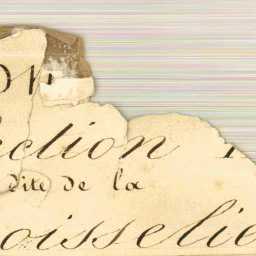 ection
dite de la
oisselie